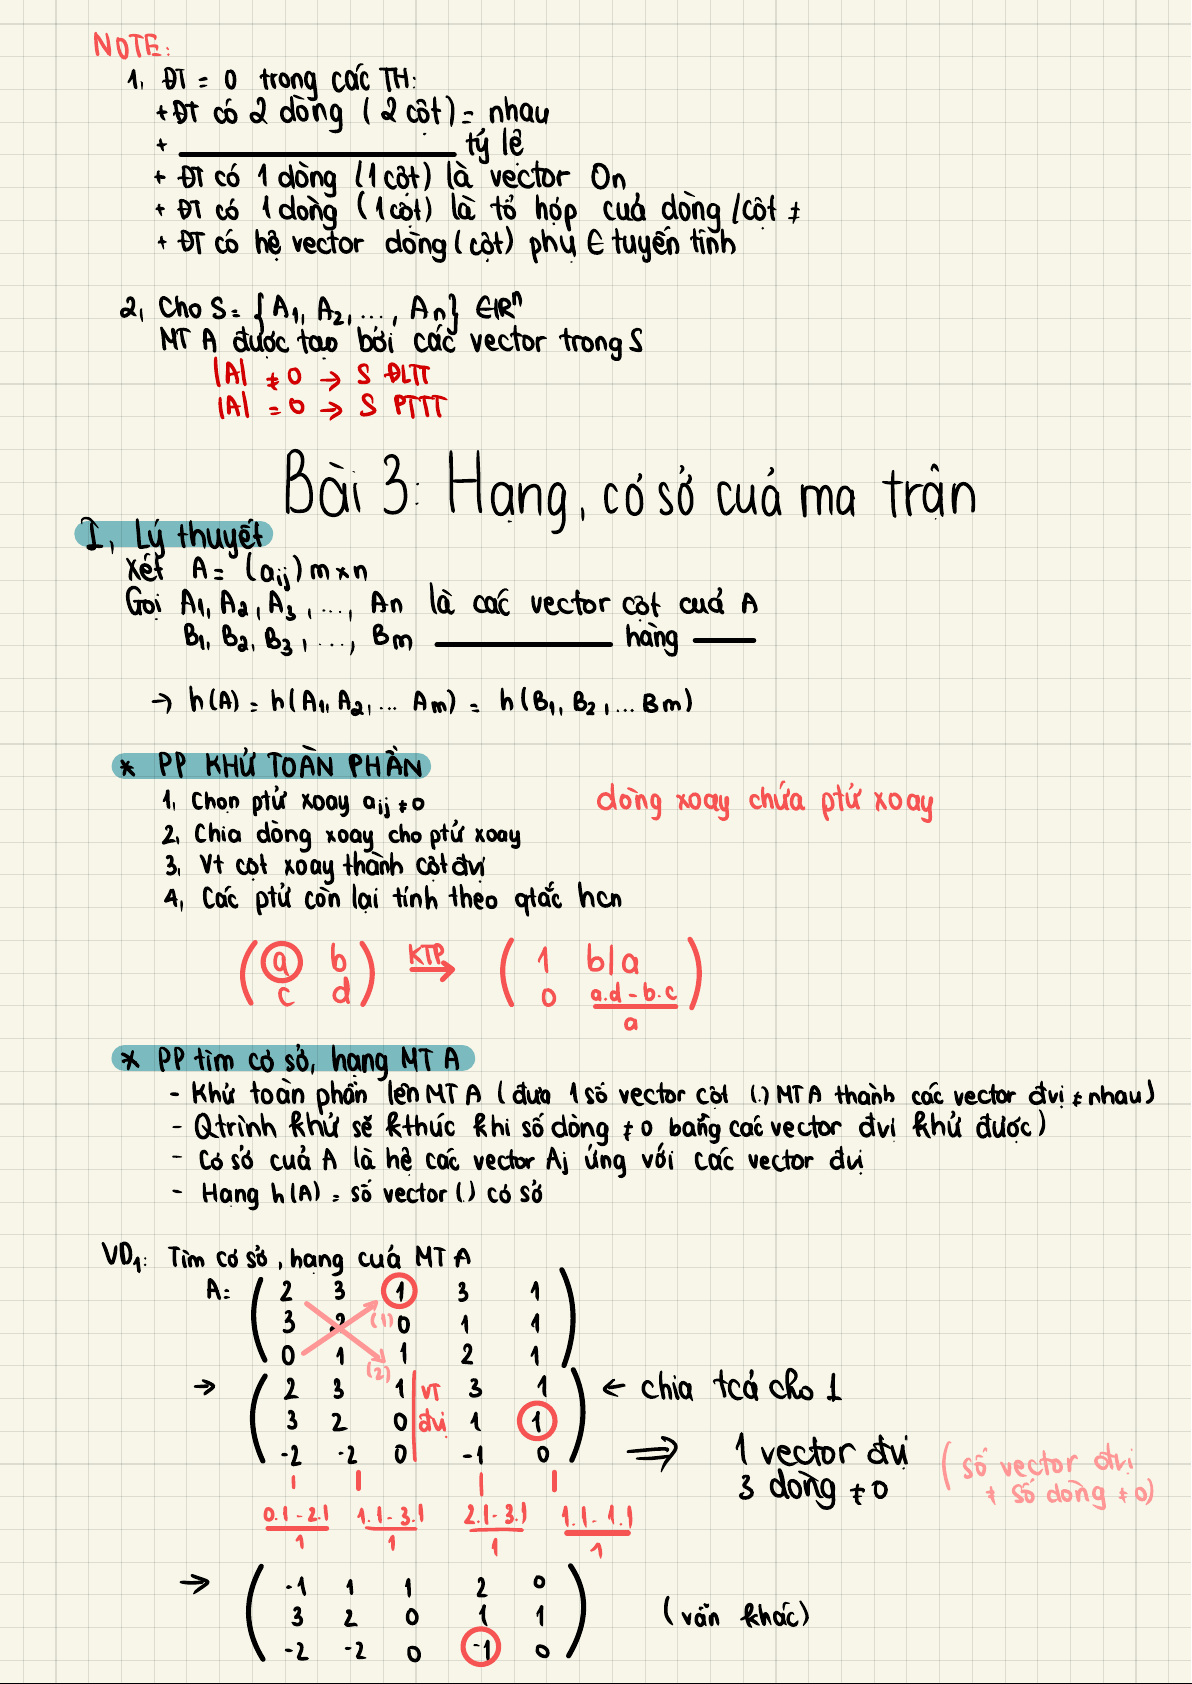 NOTE:
1, ĐT = 0 trong các TH:
+ ĐT có 2 dòng (2 cột) = nhau
+ ———————— tỷ lệ
+ ĐT có 1 dòng (1 cột) là vector On
+ ĐT có 1 dòng (1 cột) là tổ hợp của dòng/cột ≠
+ ĐT có hệ vector dòng (cột) phụ ∈ tuyến tính
2, Cho S = {A1, A2, ..., An} ∈ IR^n
MT A được tạo bởi các vector trong S
|A| ≠ 0 → S ĐLTT
|A| = 0 → S PTTT
Bài 3: Hạng, cơ sở của ma trận
I, Lý thuyết
Xét A = (aij) m×n
Gọi A1, A2, A3, ..., An là các vector cột của A
B1, B2, B3, ..., Bm ———— hàng ——
→ h(A) = h(A1, A2, ... Am) = h(B1, B2, ... Bm)
* PP KHỬ TOÀN PHẦN
1, Chọn ptử xoay aij ≠ 0 dòng xoay chứa ptử xoay
2, Chia dòng xoay cho ptử xoay
3, Vt cột xoay thành cột đvị
4, Các ptử còn lại tính theo qtắc hcn
( a b ) KTP → ( 1 b/a )
( c d ) ( 0 a.d - b.c / a )
* PP tìm cơ sở, hạng MT A
- Khử toàn phần lên MT A (đưa 1 số vector cột (.) MT A thành các vector đvị ≠ nhau)
- Qtrình khử sẽ kthúc khi số dòng ≠ 0 bằng các vector đvị khử được)
- Cơ sở của A là hệ các vector Aj ứng với các vector đvị
- Hạng h(A) = số vector (.) cơ sở
VD1: Tìm cơ sở, hạng của MT A
A = ( 2 3 1 3 1 )
3 2 (1) 0 1 1
0 1 (2) 1 2 1
→ ( 2 3 1 VT 3 1 ) ← chia tcả cho 1
3 2 0 đvị 1 1
-2 -2 0 -1 0 ⇒ 1 vector đvị (số vector đvị
3 dòng ≠ 0 ≠ số dòng ≠ 0)
0.1 - 2.1 / 1 1.1 - 3.1 / 1 2.1 - 3.1 / 1 1.1 - 1.1 / 1
→ ( -1 1 1 2 0 )
3 2 0 1 1 (vẫn khác)
-2 -2 0 -1 0